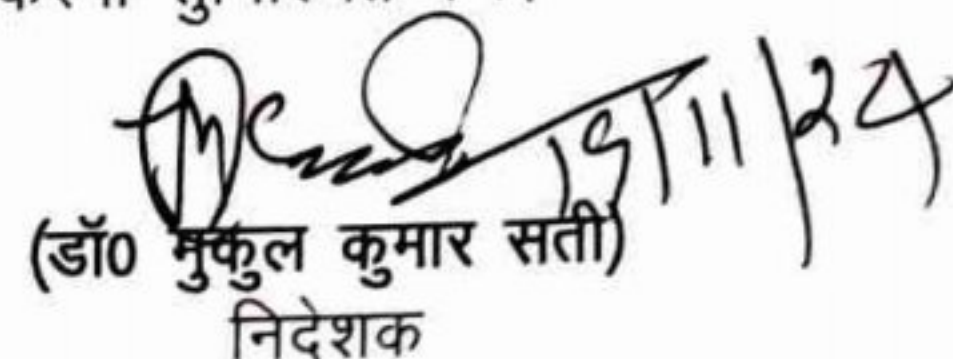 19/11/24
(डॉ0 मुकुल कुमार सती)
निदेशक